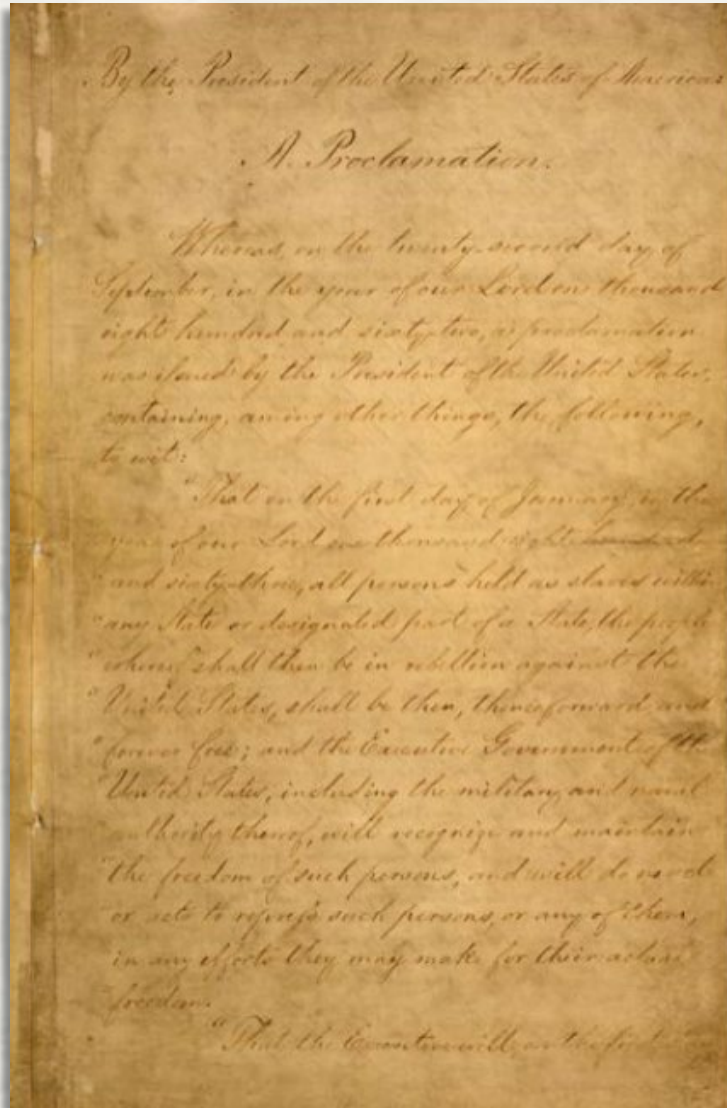 By the President of the United States of America:
A Proclamation.
Whereas, on the twenty-second day of
September, in the year of our Lord one thousand
eight hundred and sixty-two, a proclamation
was issued by the President of the United States,
containing, among other things, the following,
to wit:
"That on the first day of January, in the
year of our Lord one thousand eight hundred
and sixty-three, all persons held as slaves within
" any State or designated part of a State, the people
" whereof shall then be in rebellion against the
" United States, shall be then, thenceforward, and
" forever free; and the Executive Government of the
" United States, including the military and naval
" authority thereof, will recognize and maintain
" the freedom of such persons, and will do no act
" or acts to repress such persons, or any of them,
in any efforts they may make for their actual
" freedom.
"That the Executive will, on the first